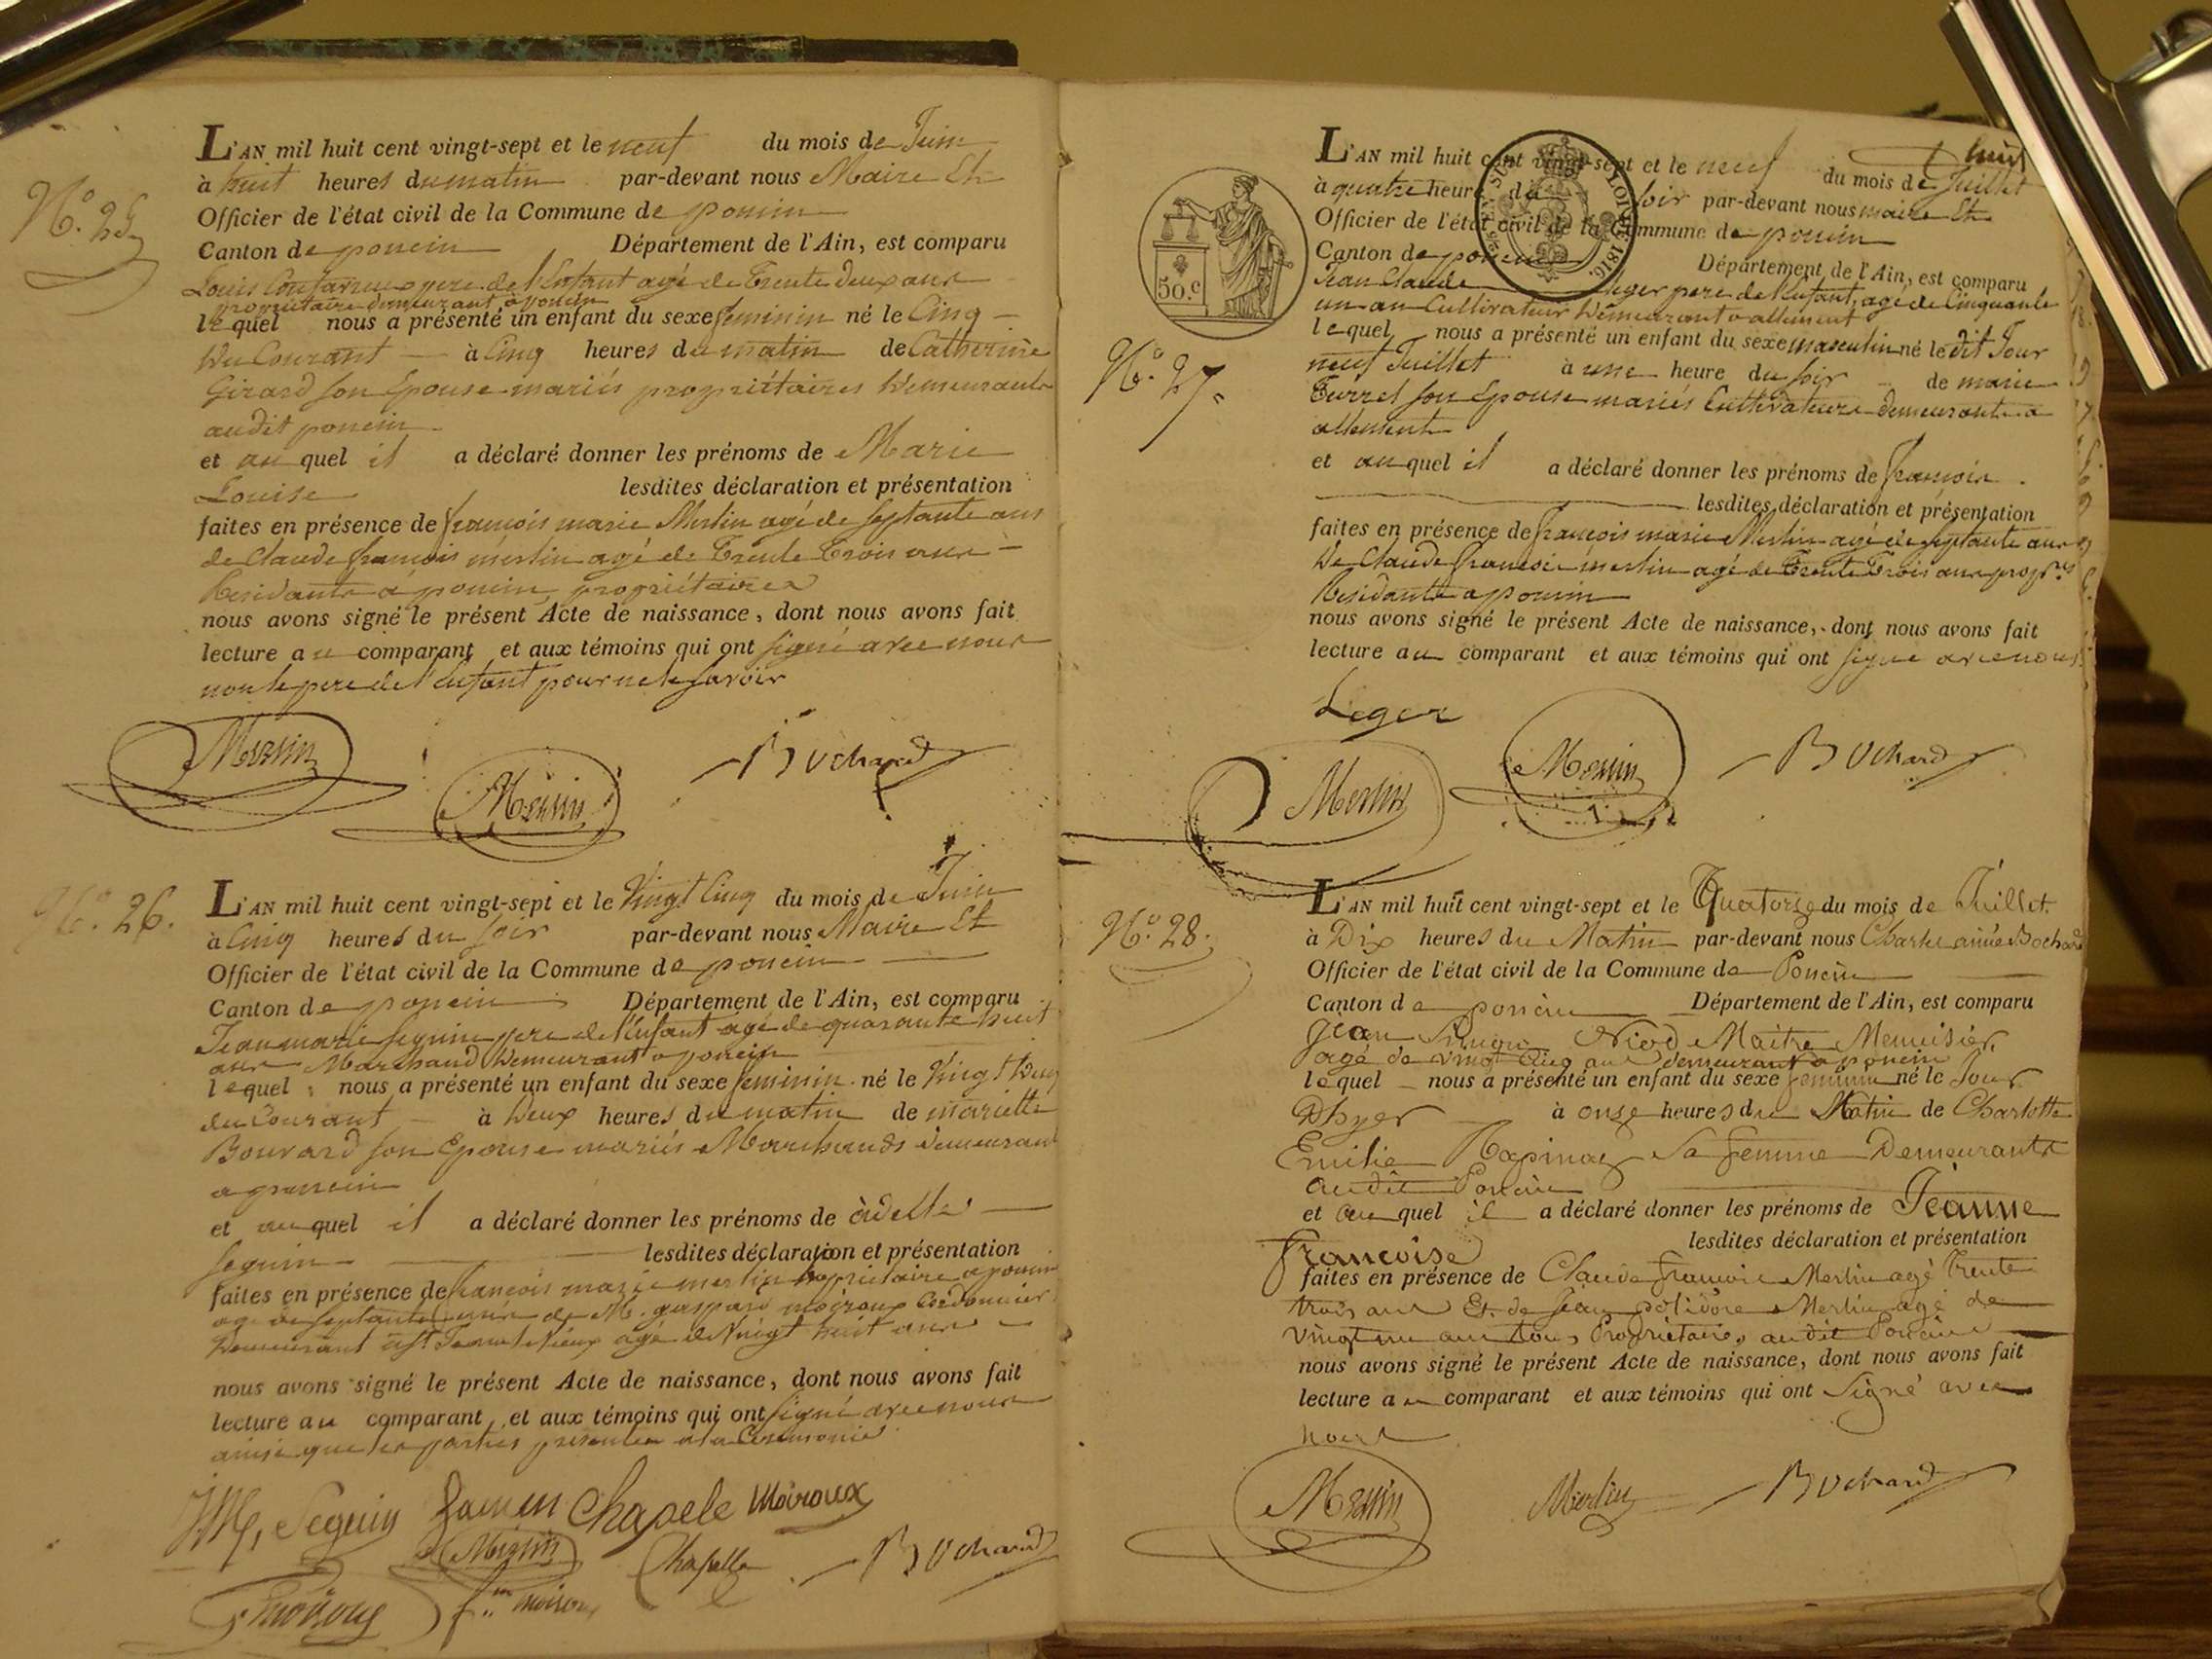 N.° 25
L'AN mil huit cent vingt-sept et le neuf du mois de Juin
à huit heures du matin par-devant nous Maire Et
Officier de l'état civil de la Commune de poncin
Canton de poncin Département de l'Ain, est comparu
Louis père de l'Enfant agé de trente deux ans
propriétaire demeurant à poncin
lequel nous a présenté un enfant du sexe feminin né le Cinq
du Courant à Cinq heures du matin de Catherine
Girard son Epouse mariés propriétaires demeurants
audit poncin
et auquel il a déclaré donner les prénoms de Marie
Louise lesdites déclaration et présentation
faites en présence de françois marie Merlin agé de septante ans
de Claude françois merlin agé de trente trois ans
Residants a poncin propriétaires
nous avons signé le présent Acte de naissance, dont nous avons fait
lecture au comparant et aux témoins qui ont signé avec nous
non le pere de l'enfant pour ne le savoir
Merlin Merlin Bochard
N.° 26.
L'AN mil huit cent vingt-sept et le Vingt Cinq du mois de Juin
à Cinq heures du soir par-devant nous Maire Et
Officier de l'état civil de la Commune de poncin
Canton de poncin Département de l'Ain, est comparu
Jean marie seguin pere de l'Enfant agé de quarante huit
ans Marchand demeurant a poncin
lequel nous a présenté un enfant du sexe feminin né le Vingt deux
du Courant à deux heures du matin de mariette
Bouvard son Epouse mariés Marchands demeurant
a poncin
et auquel il a déclaré donner les prénoms de adelle
seguin lesdites déclaration et présentation
faites en présence de françois marie merlin propriétaire a poncin
agé de septante de M. gaspard moiroux Cordonnier
demeurant agé de Vingt huit ans
nous avons signé le présent Acte de naissance, dont nous avons fait
lecture au comparant et aux témoins qui ont signé avec nous
ainsi que les parties presentes a la Ceremonie
JM, Seguin Chapele Moiroux
Merlin Chapelle Bochard
moiroux
huit
L'AN mil huit cent vingt-sept et le neuf du mois de Juillet
à quatre heures du soir par-devant nous maire Et
Officier de l'état civil de la Commune de poncin
Canton de poncin Département de l'Ain, est comparu
LOI DE 1816.
50.c
N.° 27.
Jean Claude Leger pere de l'enfant, agé de Cinquante
un an Cultivateur demeurant a allement
lequel nous a présenté un enfant du sexe masculin né le dit Jour
neuf Juillet à une heure du soir de marie
Turrel son Epouse mariés Cultivateurs demeurants a
allement
et auquel il a déclaré donner les prénoms de françois
lesdites déclaration et présentation
faites en présence de françois marie Merlin agé de septante ans
de Claude françois merlin agé de trente trois ans prop.res
Residants a poncin
nous avons signé le présent Acte de naissance, dont nous avons fait
lecture au comparant et aux témoins qui ont signé avec nous
Leger
Merlin Merlin Bochard
N.° 28.
L'AN mil huit cent vingt-sept et le Quatorze du mois de Juillet
à Dix heures du Matin par-devant nous Charles aimé Bochard
Officier de l'état civil de la Commune de Poncin
Canton de poncin Département de l'Ain, est comparu
Jean Niod Maitre Menuisier,
agé de vingt Cinq ans demeurant a poncin
lequel nous a présenté un enfant du sexe feminin né le Jour
Dhyer à onze heures du Matin de Charlotte
Emilie Sa femme Demeurants
audit Poncin
et auquel il a déclaré donner les prénoms de Jeanne
francoise lesdites déclaration et présentation
faites en présence de Claude francois Merlin agé trente
trois ans Et de Jean polidore Merlin agé de
vingt un ans tous Propriétaires audit Poncin
nous avons signé le présent Acte de naissance, dont nous avons fait
lecture au comparant et aux témoins qui ont Signé avec
nous
Merlin Merlin Bochard